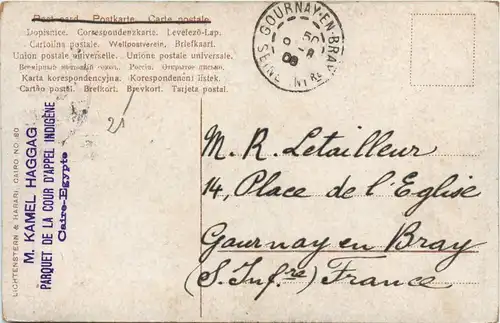 Post card Postkarte Carte postale
Dopisnice. Correspondenzkarte. Levelező-Lap.
Cartolina postale. Weltpostverein. Briefkaart.
Union postale universelle. Unione postale universale.
Karta korespondencyjna. Korespondenční lístek.
Cartão postal. Brefkort. Brevkort. Tarjeta postal.
GOURNAY-EN-BRAY
SEINE INFRE
08
21
LICHTENSTERN & HARARI, CAIRO NO. 80
M. KAMEL HAGGAG
PARQUET DE LA COUR D'APPEL INDIGÈNE
Caire-Egypte
M. R. Letailleur
14, Place de l'Eglise
Gournay en Bray
(S. Infre) France